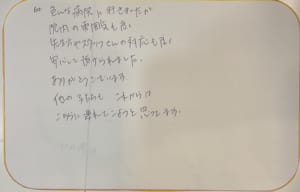 色んな病院に行きましたが
院内の雰囲気も良く
先生方やスタッフさんの対応も良く
安心して預けられました。
ありがとうございます。
他の子たちも これからは
こちらに連れてこようと思ってます。